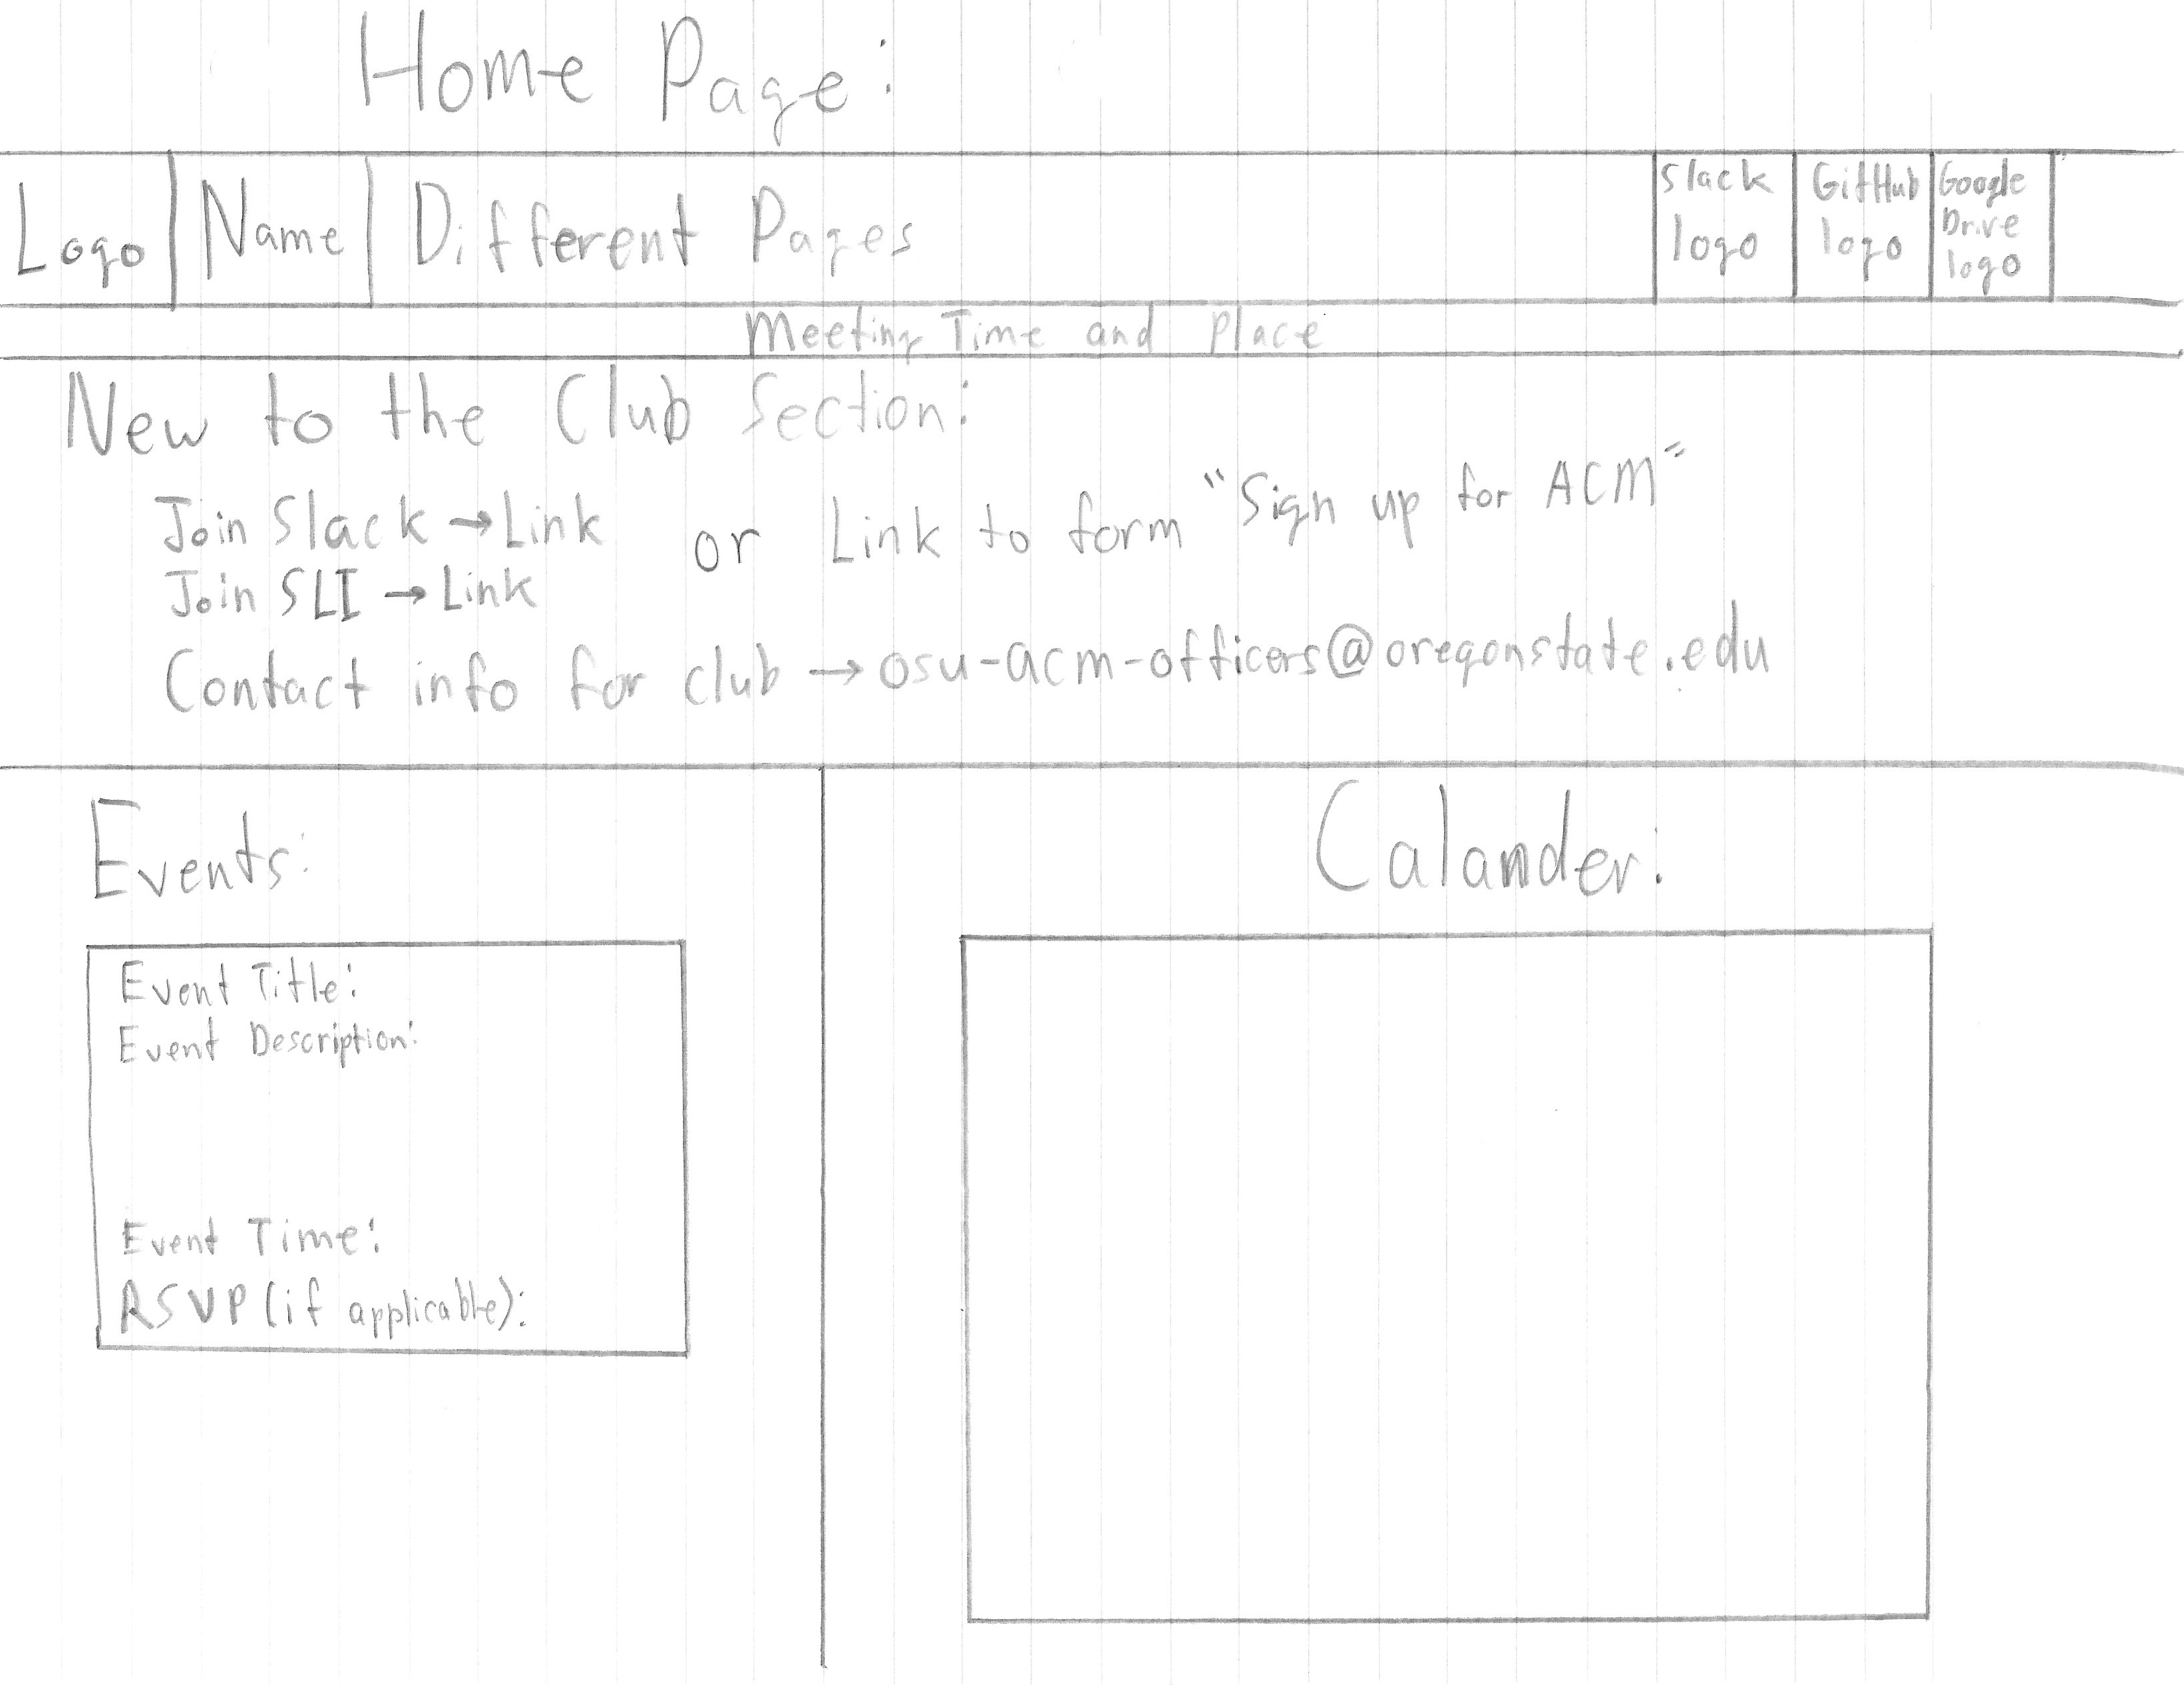 Home Page:
Logo Name Different Pages
Slack logo
GitHub logo
Google Drive logo
Meeting Time and Place
New to the Club Section:
Join Slack → Link or Link to form "Sign up for ACM"
Join SLI → Link
Contact info for club → osu-acm-officers@oregonstate.edu
Events:
Event Title:
Event Description:
Event Time:
RSVP (if applicable):
Calander: